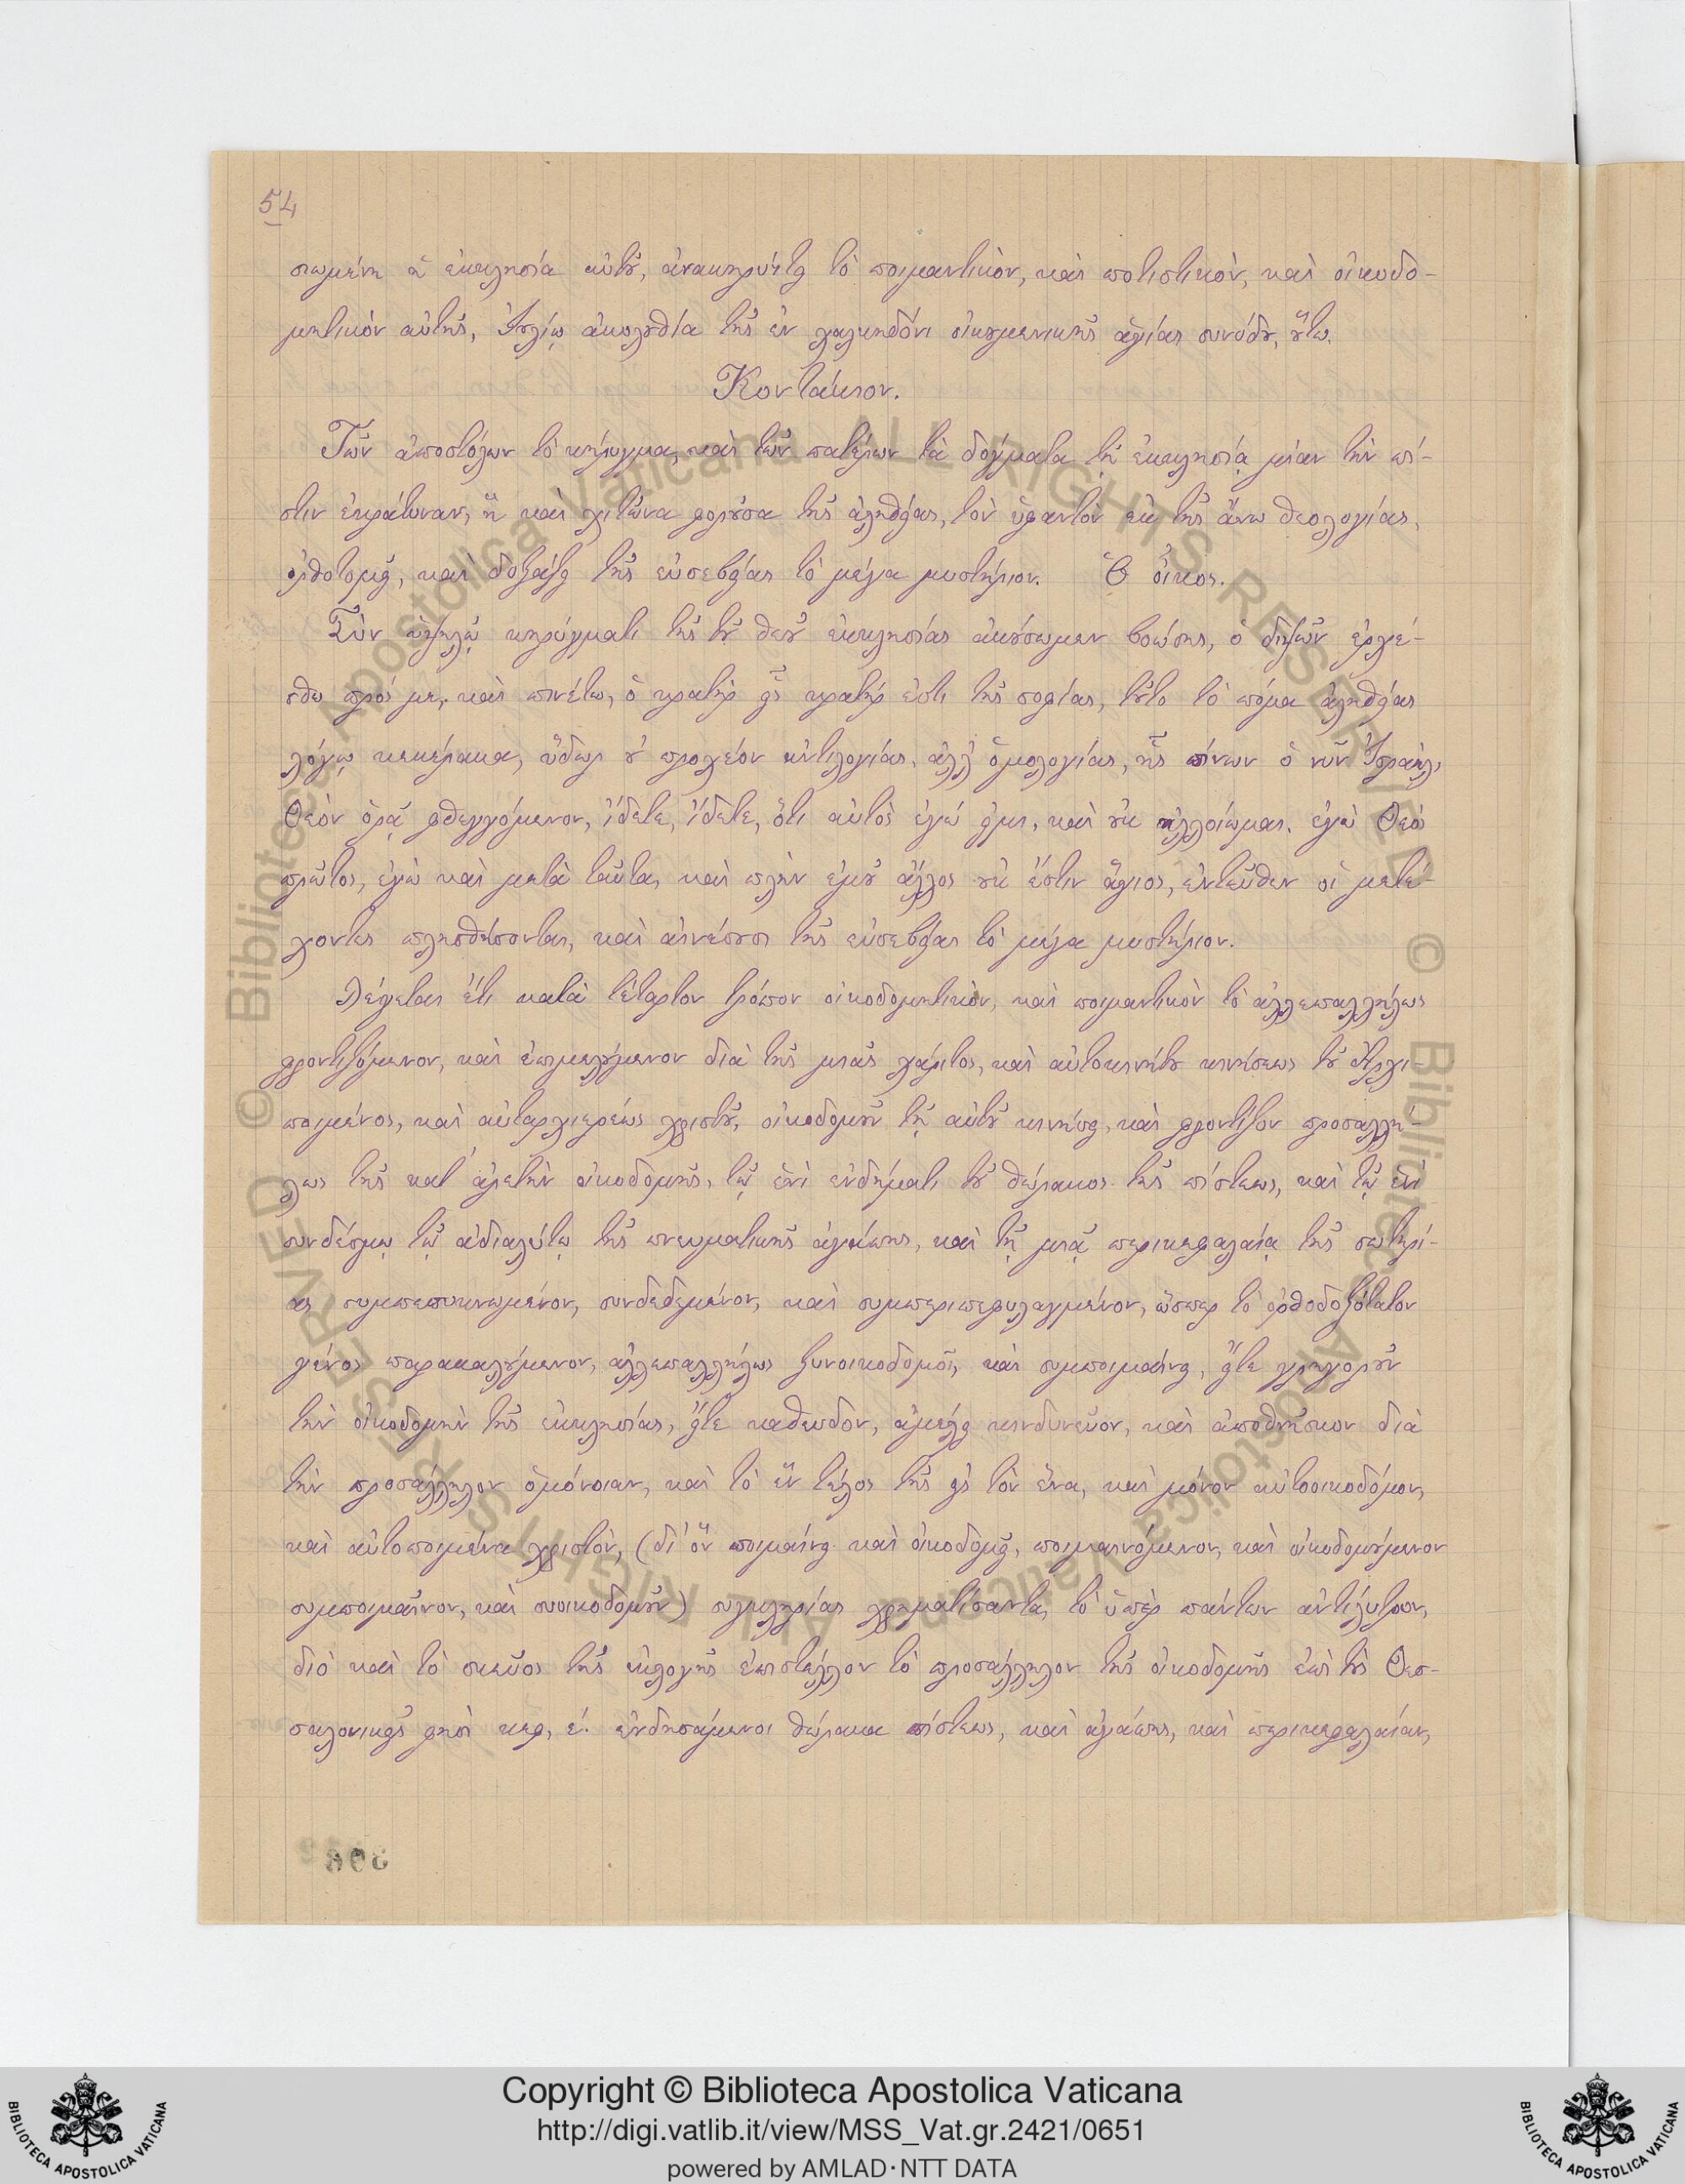 54
σιωμένη ἡ ἐκκλησία αὐτοῦ, ἀνακηρύττει τὸ ποιμαντικὸν, καὶ ποτιστικὸν, καὶ οἰκοδο-
μητικὸν αὐτῆς, Ἰουλίῳ ἀκολουθία τῆς ἐν χαλκηδόνι οἰκουμενικῆς ἁγίας συνόδου, οὕτω.
Κοντάκιον.
Τῶν ἀποστόλων τὸ κήρυγμα, καὶ τῶν πατέρων τὰ δόγματα τῇ ἐκκλησίᾳ μίαν τὴν πί-
στιν ἐκράτυναν, ἣ καὶ χιτῶνα φοροῦσα τῆς ἀληθείας, τὸν ὑφαντὸν ἐκ τῆς ἄνω θεολογίας,
ὀρθοτομεῖ, καὶ δοξάζει τῆς εὐσεβείας τὸ μέγα μυστήριον. Ὁ οἶκος.
Σὺν ὑψηλῷ κηρύγματι τῆς τοῦ θεοῦ ἐκκλησίας ἀκούσωμεν βοώσης, ὁ διψῶν ἐρχέ-
σθω πρός με, καὶ πινέτω, ὁ κρατὴρ εἷς κρατήρ ἐστι τῆς σοφίας, τοῦτο τὸ πόμα ἀληθείας
λόγῳ κεκέρακα, ὕδωρ οὐ προχέον ἀντιλογίας, ἀλλ' ὁμολογίας, ἧς πίνων ὁ νῦν Ἰσραὴλ,
Θεὸν ὁρᾷ φθεγγόμενον, ἴδετε, ἴδετε, ὅτι αὐτὸς ἐγώ εἰμι, καὶ οὐκ ἠλλοίωμαι. ἐγὼ Θεὸς
πρῶτος, ἐγὼ καὶ μετὰ ταῦτα, καὶ πλὴν ἐμοῦ ἄλλος οὐκ ἔστιν ἅγιος, ἐντεῦθεν οἱ μετέ-
χοντες πλησθήσονται, καὶ αἰνέσουσι τῆς εὐσεβείας τὸ μέγα μυστήριον.
Λέγεται ἔτι κατὰ τέταρτον τρόπον οἰκοδομητικὸν, καὶ ποιμαντικὸν τὸ ἀλλεπαλλήλως
φροντιζόμενον, καὶ ἐπιμελούμενον διὰ τῆς μιᾶς χάριτος, καὶ αὐτοκινήτου κινήσεως τοῦ Ἀρχι-
ποιμένος, καὶ αὐταρχιερέως χριστοῦ, οἰκοδομοῦν τῇ αὐτοῦ κινήσει, καὶ φροντίζον προσαλλή-
λως τῆς κατ' ἀρετὴν οἰκοδομῆς, τῷ ἑνὶ ἐνδύματι τοῦ θώρακος τῆς πίστεως, καὶ τῷ ἑνὶ
συνδέσμῳ τῷ ἀδιαλύτῳ τῆς πνευματικῆς ἀγάπης, καὶ τῇ μιᾷ περικεφαλαίᾳ τῆς σωτηρί-
ας συμπεπυκνωμένον, συνδεδεμένον, καὶ συμπεριπεφυλαγμένον, ὥσπερ τὸ ὀρθοδοξότατον
γένος παρακαλούμενον, ἀλλεπαλλήλως ξυνοικοδομεῖ, καὶ συμποιμαίνει, εἴτε γρηγοροῦν
τὴν οἰκοδομὴν τῆς ἐκκλησίας, εἴτε καθευδὸν, ἀμελεῖ κινδυνεῦον, καὶ ἀποθνῆσκον διὰ
τὴν προσάλληλον ὁμόνοιαν, καὶ τὸ ἓν τέλος τῆς εἰς τὸν ἕνα, καὶ μόνον αὐτοοικοδόμον,
καὶ αὐτοποιμένα χριστὸν, (δι' ὃν ποιμαίνει καὶ οἰκοδομεῖ, ποιμαινόμενον, καὶ οἰκοδομούμενον
συμποιμαῖνον, καὶ συοικοδομοῦν) συγκληρίας χρηματίσαντα, τὸ ὑπὲρ πάντων ἀντίλυτρον,
διὸ καὶ τὸ σκεῦος τῆς ἐκλογῆς ἐπιστέλλον τὸ προσάλληλον τῆς οἰκοδομῆς ἐπὶ τοὺς Θεσ-
σαλονικεῖς φησὶ κεφ, ε΄. ἐνδησάμενοι θώρακα πίστεως, καὶ ἀγάπης, καὶ περικεφαλαίαν,
Copyright © Biblioteca Apostolica Vaticana
http://digi.vatlib.it/view/MSS_Vat.gr.2421/0651
powered by AMLAD·NTT DATA